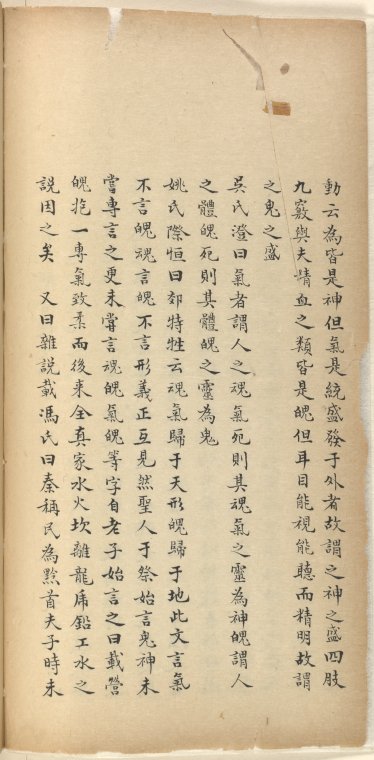 動云為皆是神但氣是統盛發于外者故謂之神之盛四肢
九竅與夫精血之類皆是魄但耳目能視能聽而精明故謂
之鬼之盛
吳氏澄曰氣者謂人之魂氣死則其魂氣之靈為神魄謂人
之體魄死則其體魄之靈為鬼
姚氏際恒曰郊特牲云魂氣歸于天形魄歸于地此文言氣
不言魄魂言魄不言形義正互見然聖人于祭始言鬼神未
嘗專言之更未嘗言魂魄氣魄等字自老子始言之曰載營
魄抱一專氣致柔而後來全真家水火坎離龍虎鉛工水之
説因之矣 又曰雜説載馮氏曰秦稱民為黔首夫子時未